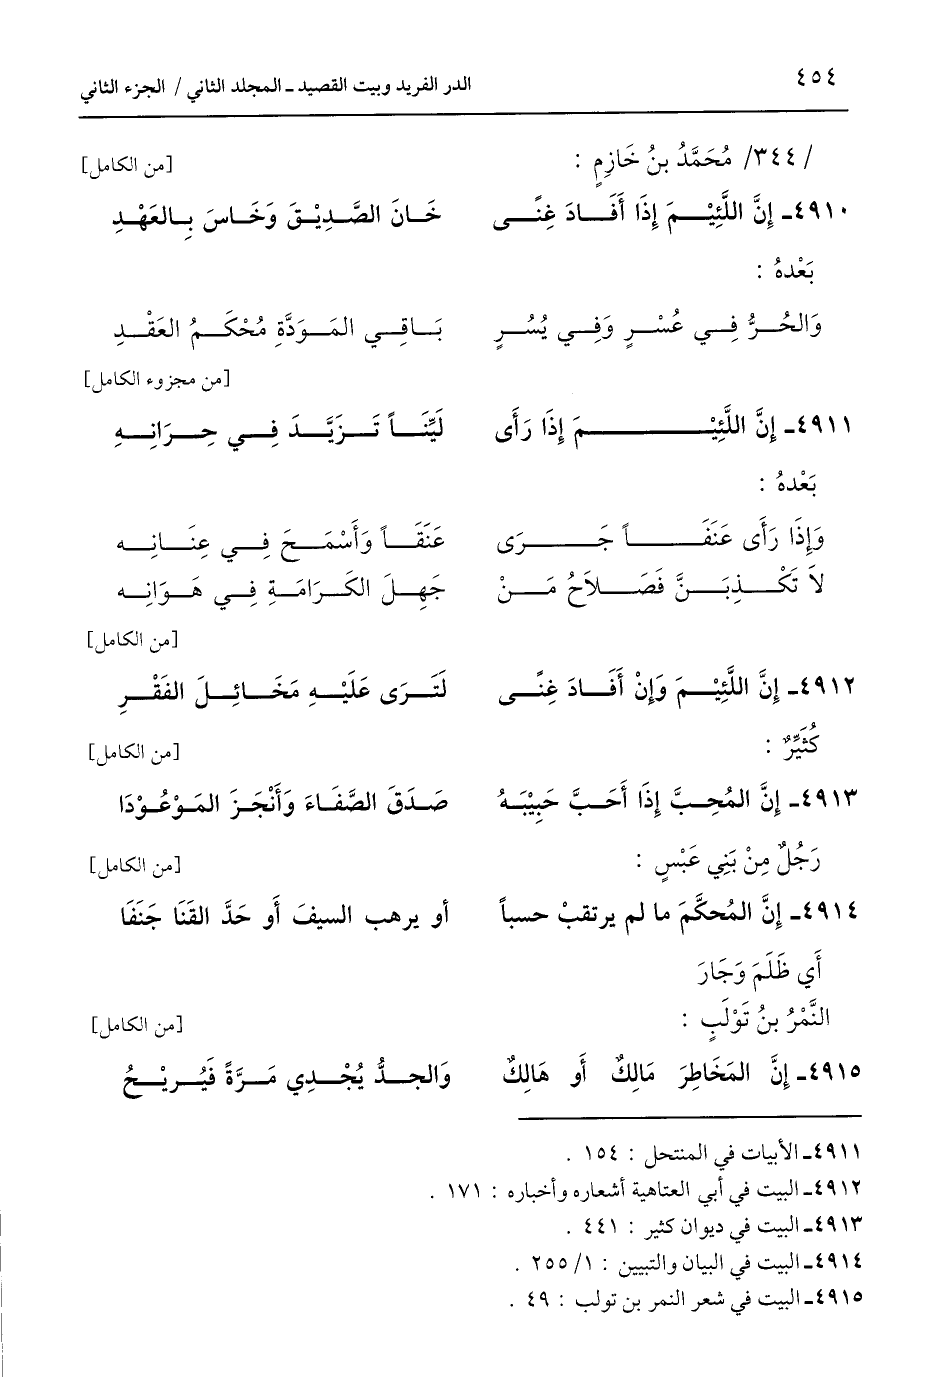 ٤٥٤ الدر الفريد وبيت القصيد ـ المجلد الثاني / الجزء الثاني
/٣٤٤/ مُحَمَّدُ بنُ خَازِمٍ : [من الكامل]
٤٩١٠ـ إِنَّ اللَّئِيْمَ إِذَا أَفَادَ غِنًى خَانَ الصَّدِيْقَ وَخَاسَ بِالعَهْدِ
بَعْدهُ :
وَالحُرُّ فِي عُسْرٍ وَفِي يُسُرٍ بَاقِي المَوَدَّةِ مُحْكَمُ العَقْدِ
[من مجزوء الكامل]
٤٩١١ـ إِنَّ اللَّئِيْمَ إِذَا رَأَى لَيِّنَاً تَزَيَّدَ فِي حِرَانِهِ
بَعْدهُ :
وَإِذَا رَأَى عَنَفَاً جَرَى عَنَقَاً وَأَسْمَحَ فِي عِنَانِه
لاَ تَكْذِبَنَّ فَصَلاَحُ مَنْ جَهِلَ الكَرَامَةِ فِي هَوَانِه
[من الكامل]
٤٩١٢ـ إِنَّ اللَّئِيْمَ وَإِنْ أَفَادَ غِنًى لَتَرَى عَلَيْهِ مَخَائِلَ الفَقْرِ
كُثَيِّرُ : [من الكامل]
٤٩١٣ـ إِنَّ المُحِبَّ إِذَا أَحَبَّ حَبِيْبَهُ صَدَقَ الصَّفَاءَ وَأَنْجَزَ المَوْعُوْدَا
رَجُلٌ مِنْ بَنِي عَبْسٍ : [من الكامل]
٤٩١٤ـ إِنَّ المُحكَّمَ ما لم يرتقبْ حسباً أو يرهب السيفَ أَو حَدَّ القَنَا جَنَفَا
أَي ظَلَمَ وَجَارَ
النَّمْرُ بنُ تَوْلَبٍ : [من الكامل]
٤٩١٥ـ إِنَّ المَخَاطِرَ مَالِكٌ أو هَالِكٌ وَالجدُّ يُجْدِي مَرَّةً فَيُرِيْحُ
٤٩١١ـ الأبيات في المنتحل : ١٥٤ .
٤٩١٢ـ البيت في أبي العتاهية أشعاره وأخباره : ١٧١ .
٤٩١٣ـ البيت في ديوان كثير : ٤٤١ .
٤٩١٤ـ البيت في البيان والتبيين : ١/ ٢٥٥ .
٤٩١٥ـ البيت في شعر النمر بن تولب : ٤٩ .